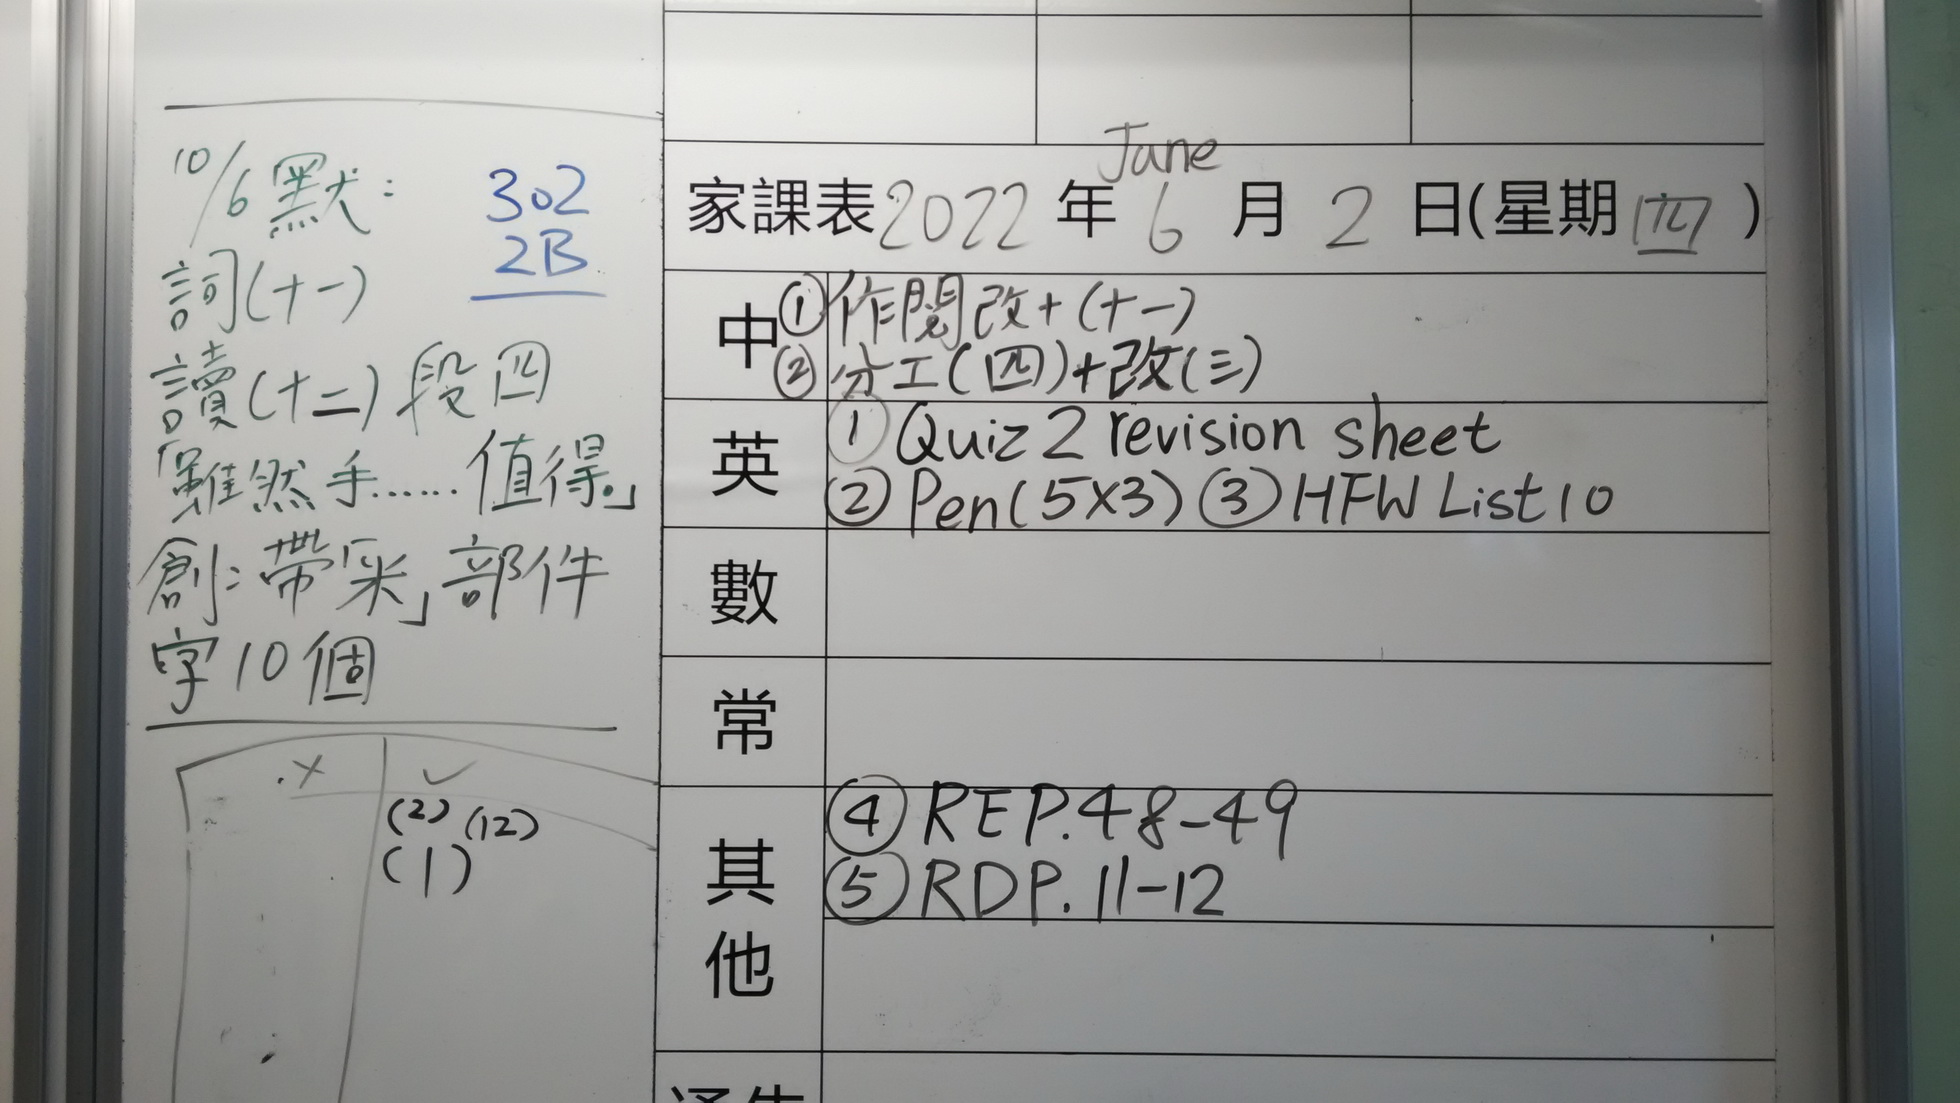 10/6 默:
302
2B
詞(十一)
讀(十二) 段四
「雖然手……值得。」
創:帶「采」部件
字10個
. × ✓
(2) (12)
(1)
June
家課表 2022 年 6 月 2 日(星期 四)
中 ① 作閱改+(十一)
② 分工(四)+改(三)
英 ① Quiz 2 revision sheet
② Pen(5×3) ③ HFW List 10
數
常
其他 ④ REP.48-49
⑤ RDP.11-12